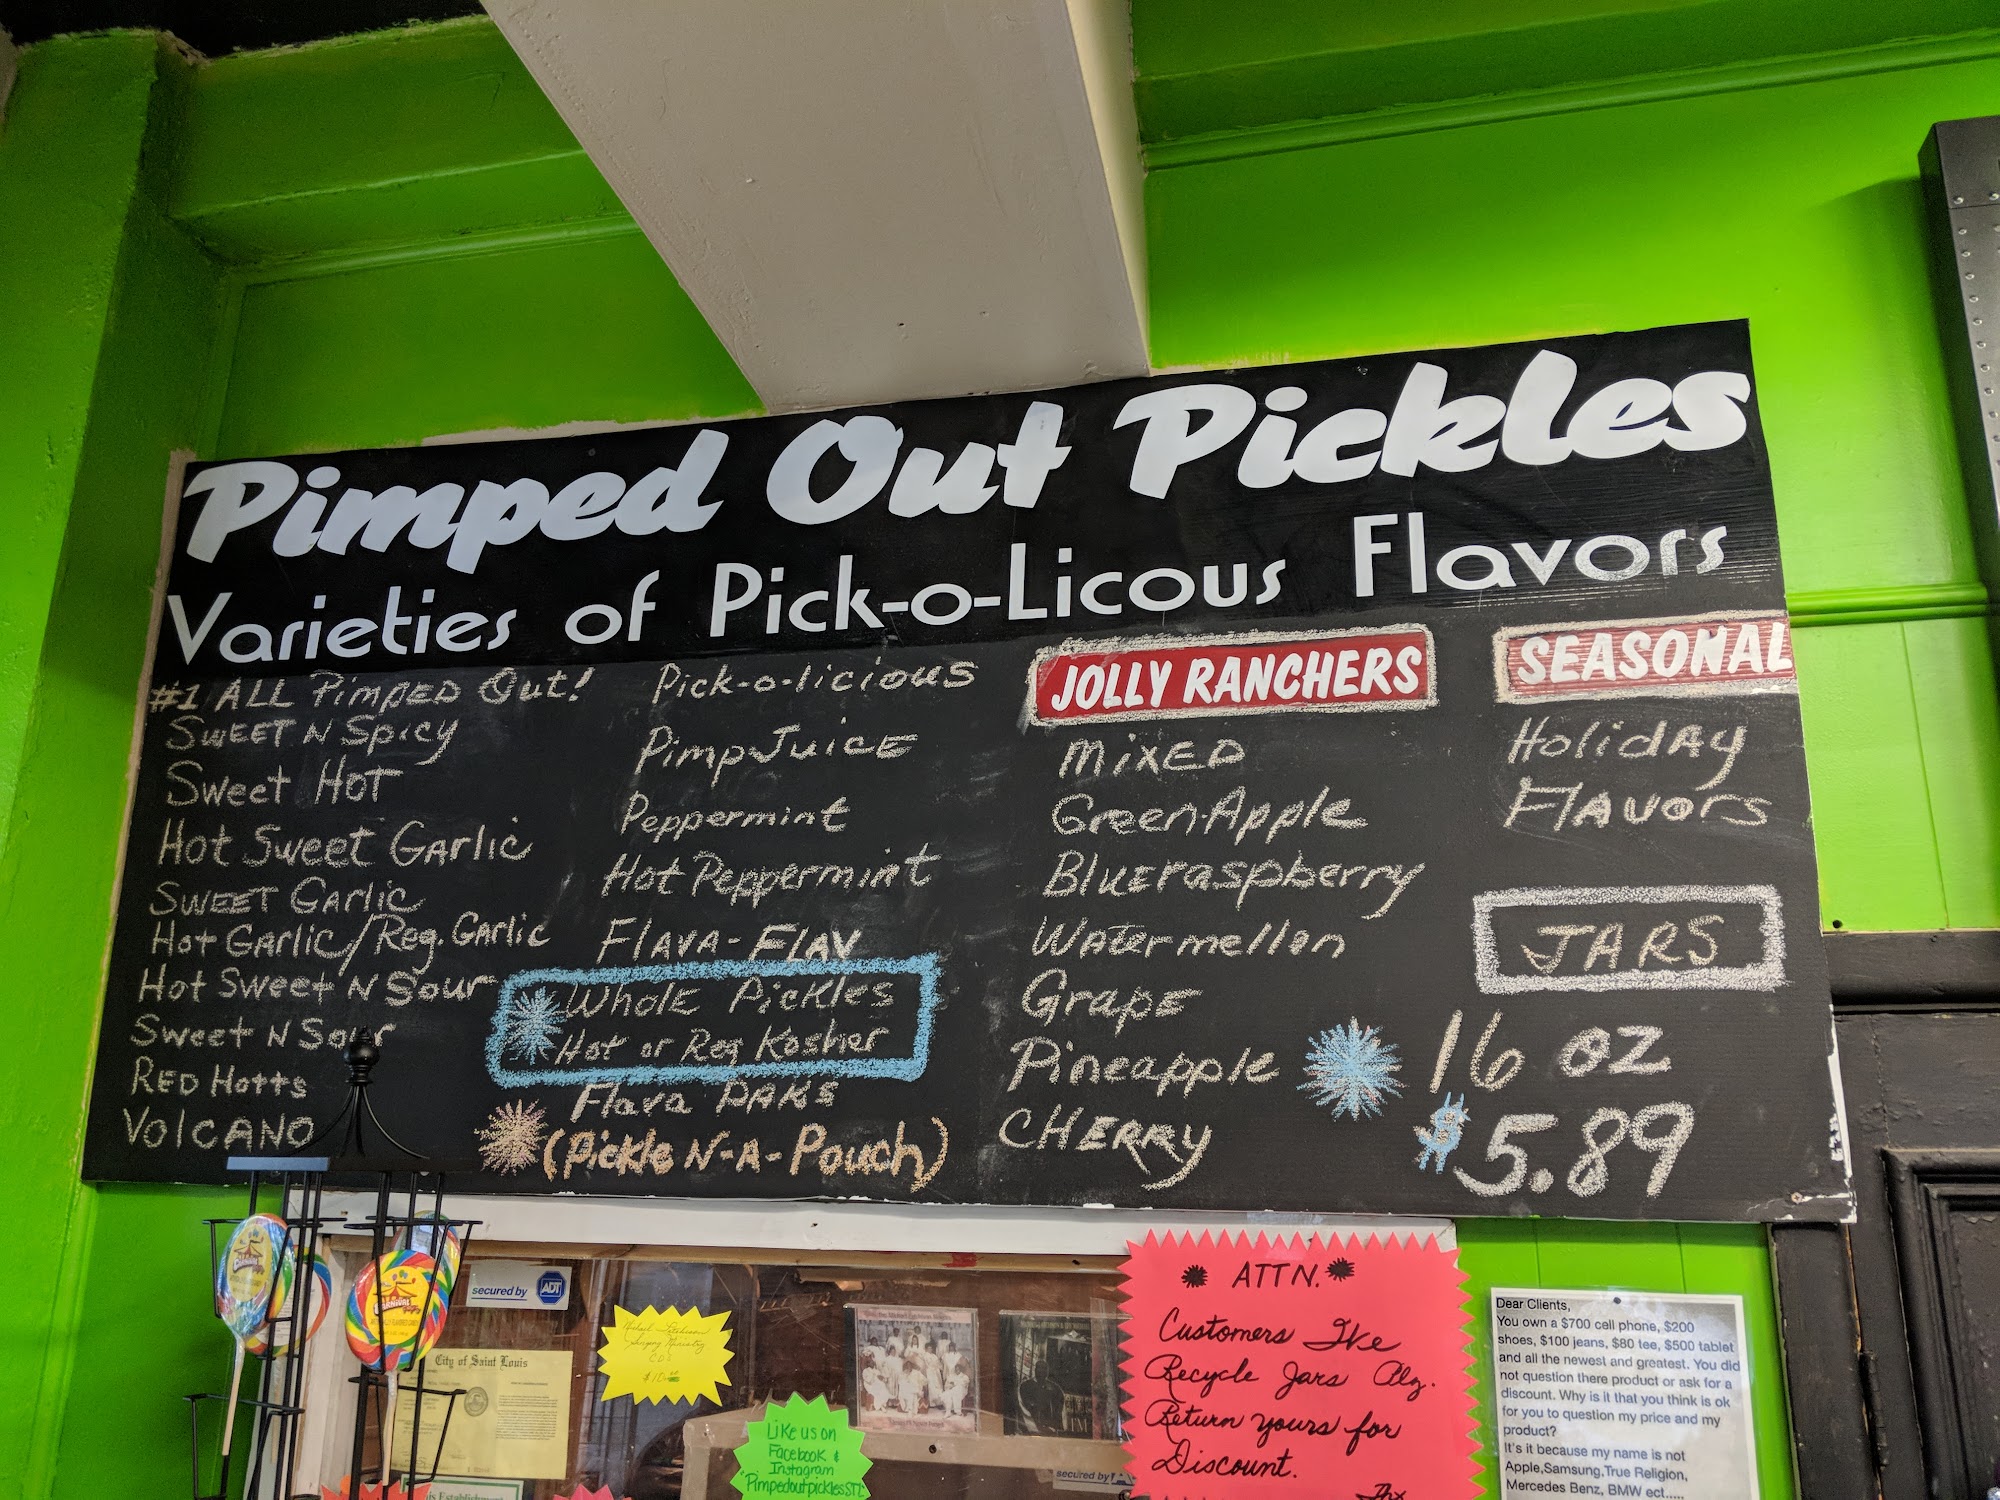 Pimped Out Pickles
Varieties of Pick-o-Licous Flavors
#1 ALL PIMPED Out!
SWEET N Spicy
Sweet HOT
Hot Sweet Garlic
SWEET Garlic
Hot Garlic/Reg. Garlic
Hot Sweet N Sour
Sweet N Sour
RED Hotts
VOLCANO
Pick-o-licious
Pimp JUICE
Peppermint
Hot Peppermint
FLAVA-FLAV
Whole Pickles
Hot or Reg Kosher
Flava PAKS
(Pickle N-A-Pouch)
JOLLY RANCHERS
MIXED
Green Apple
Blueraspberry
Watermellon
Grape
Pineapple
CHERRY
SEASONAL
Holiday
Flavors
JARS
16 oz
$5.89
secured by ADT
City of Saint Louis
CDs
$10.00
Like us on
Facebook &
Instagram
"PimpedoutpicklesSTL
secured by
ATTN.
Customers
Recycle Jars
Return yours for
Discount.
Thx
Dear Clients,
You own a $700 cell phone, $200
shoes, $100 jeans, $80 tee, $500 tablet
and all the newest and greatest. You did
not question there product or ask for a
discount. Why is it that you think is ok
for you to question my price and my
product?
It's it because my name is not
Apple,Samsung,True Religion,
Mercedes Benz, BMW ect.....